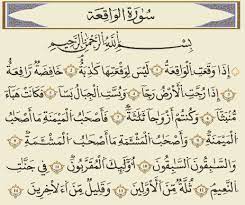 سُورَةُ الْوَاقِعَةِ
بِسْمِ اللَّهِ الرَّحْمَٰنِ الرَّحِيمِ
إِذَا وَقَعَتِ الْوَاقِعَةُ ١ لَيْسَ لِوَقْعَتِهَا كَاذِبَةٌ ٢ خَافِضَةٌ رَافِعَةٌ
٣ إِذَا رُجَّتِ الْأَرْضُ رَجًّا ٤ وَبُسَّتِ الْجِبَالُ بَسًّا ٥ فَكَانَتْ هَبَاءً
مُنْبَثًّا ٦ وَكُنْتُمْ أَزْوَاجًا ثَلَاثَةً ٧ فَأَصْحَابُ الْمَيْمَنَةِ مَا أَصْحَابُ
الْمَيْمَنَةِ ٨ وَأَصْحَابُ الْمَشْأَمَةِ مَا أَصْحَابُ الْمَشْأَمَةِ ٩
وَالسَّابِقُونَ السَّابِقُونَ ١٠ أُولَٰئِكَ الْمُقَرَّبُونَ ١١ فِي جَنَّاتِ
النَّعِيمِ ١٢ ثُلَّةٌ مِنَ الْأَوَّلِينَ ١٣ وَقَلِيلٌ مِنَ الْآخِرِينَ ١٤